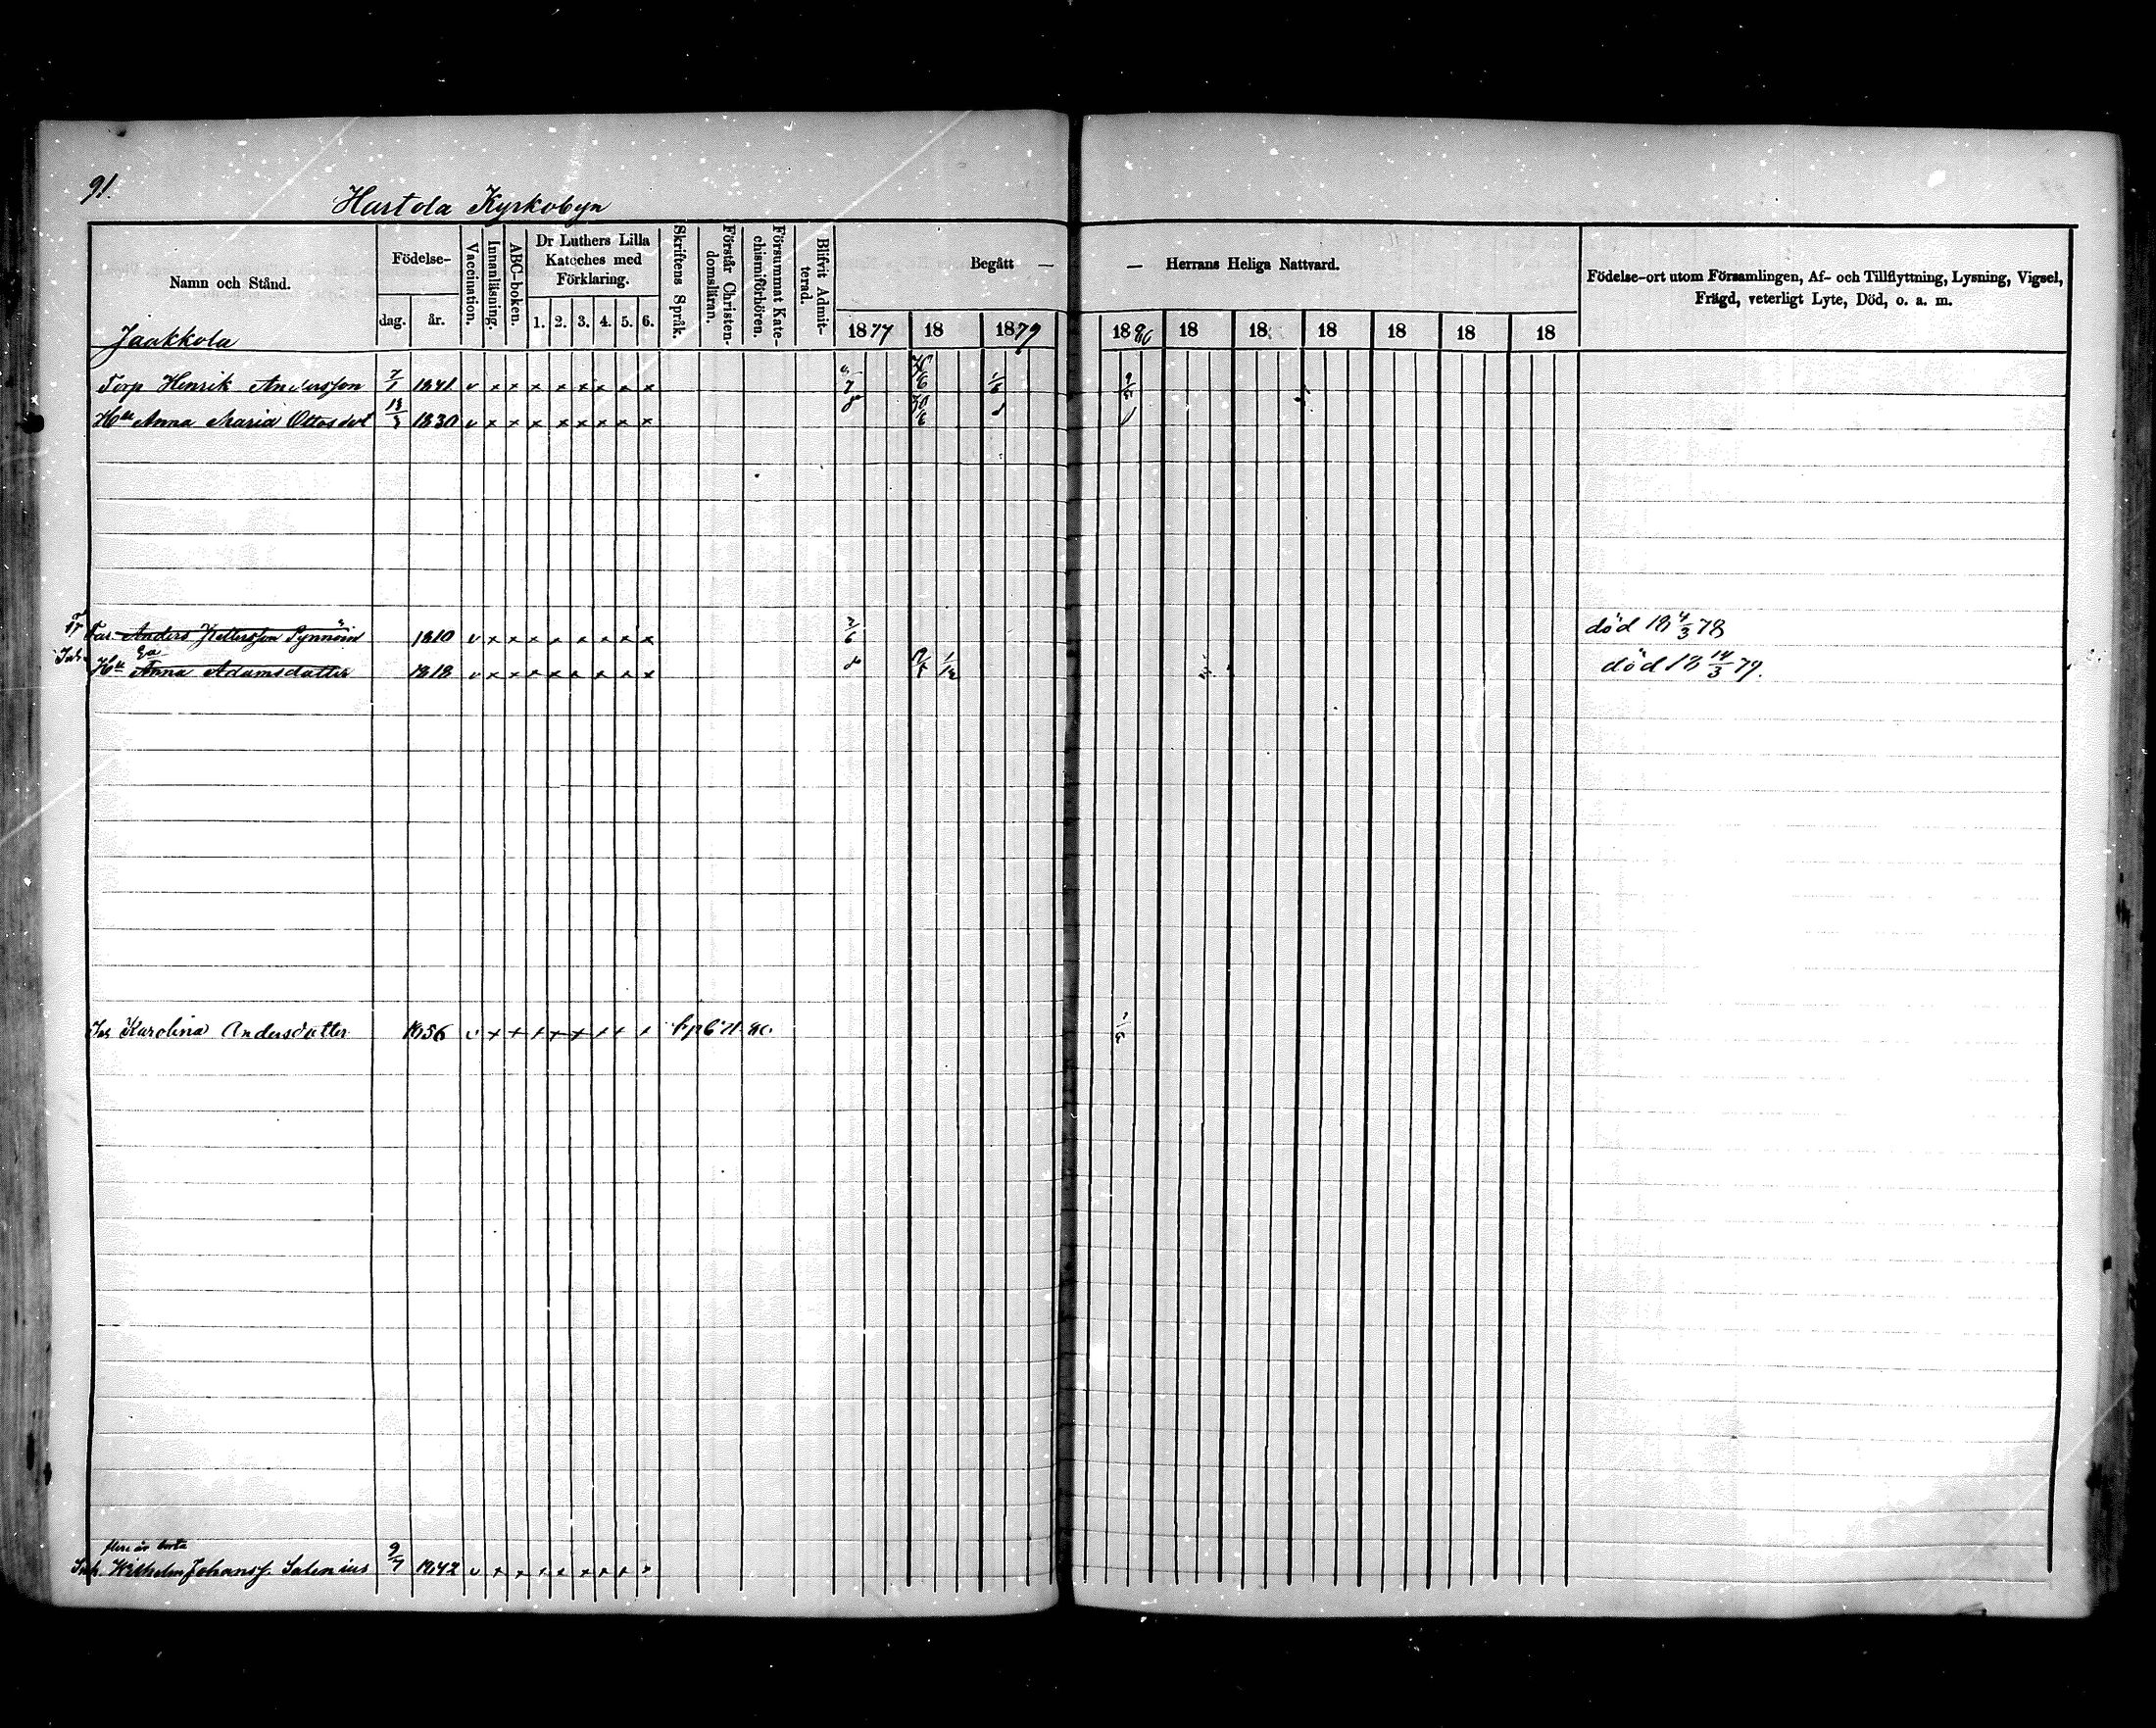 91.
Hartola Kyrkobyn
Namn och Stånd.
Födelse-
dag. år.
Vaccination.
Innanläsning.
ABC-boken.
Dr Luthers Lilla Kateches med Förklaring.
1. 2. 3. 4. 5. 6.
Skriftens Språk.
Förstår Christendomsläran.
Försummat Katechismiförhören.
Blifvit Admitterad.
Begått — — Herrans Heliga Nattvard.
1877 18 1879 1880 18 18 18 18 18 18
Födelse-ort utom Församlingen, Af- och Tillflyttning, Lysning, Vigsel,
Frägd, veterligt Lyte, Död, o. a. m.
Jaakkola
Torp Henrik Andersson 7/1 1841 v x x x x x x x x 30/6 1/6 9/5
Hu Anna Maria Ottosdot 1830 v x x x x x x x x 30/6
Far Anders 1810 v x x x x x x x x död 18 4/3 78
Eva
Hu Anna Adamsdatter 1818 v x x x x x x x x 1/12 död 18 14/3 79.
Karolina Andersdatter 1856 v x x x x x x x x
flere år borta
Inh. Wilhelm Johanss. Salenius 9/7 1842 v x x x x x x x x